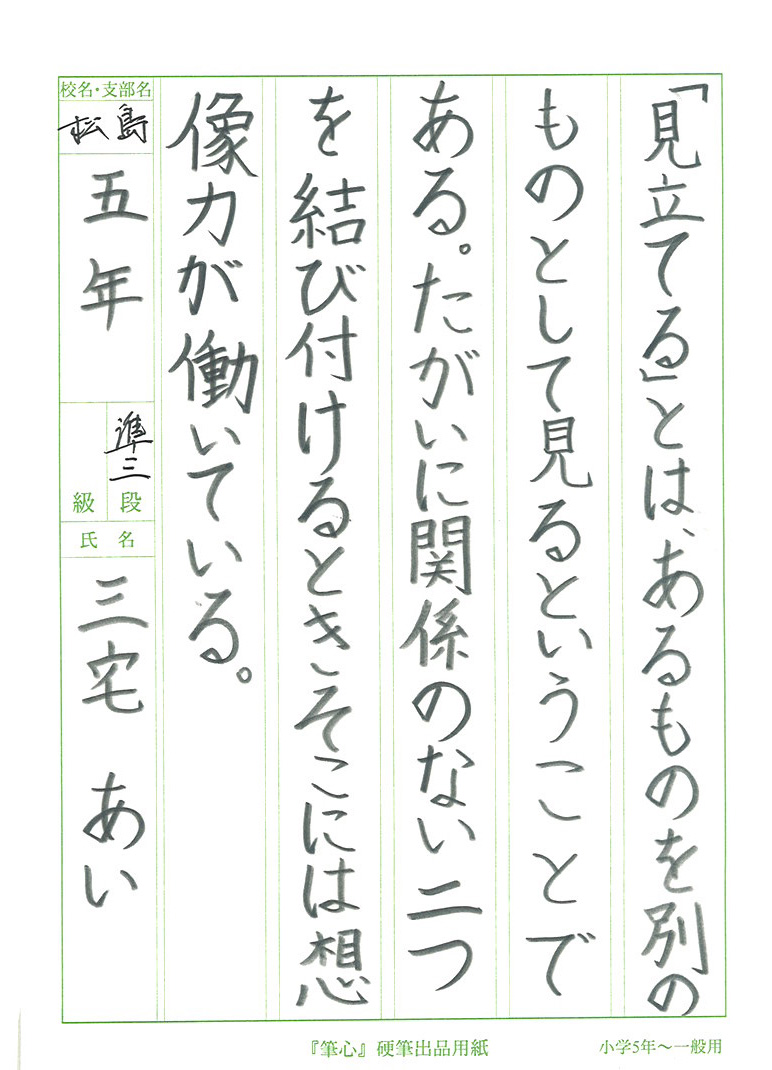 「見立てる」とは、あるものを別の
ものとして見るということで
ある。たがいに関係のない二つ
を結び付けるときそこには想
像力が働いている。
校名・支部名
松島
五年
準三
段
級
氏名
三宅 あい
『筆心』硬筆出品用紙
小学5年~一般用